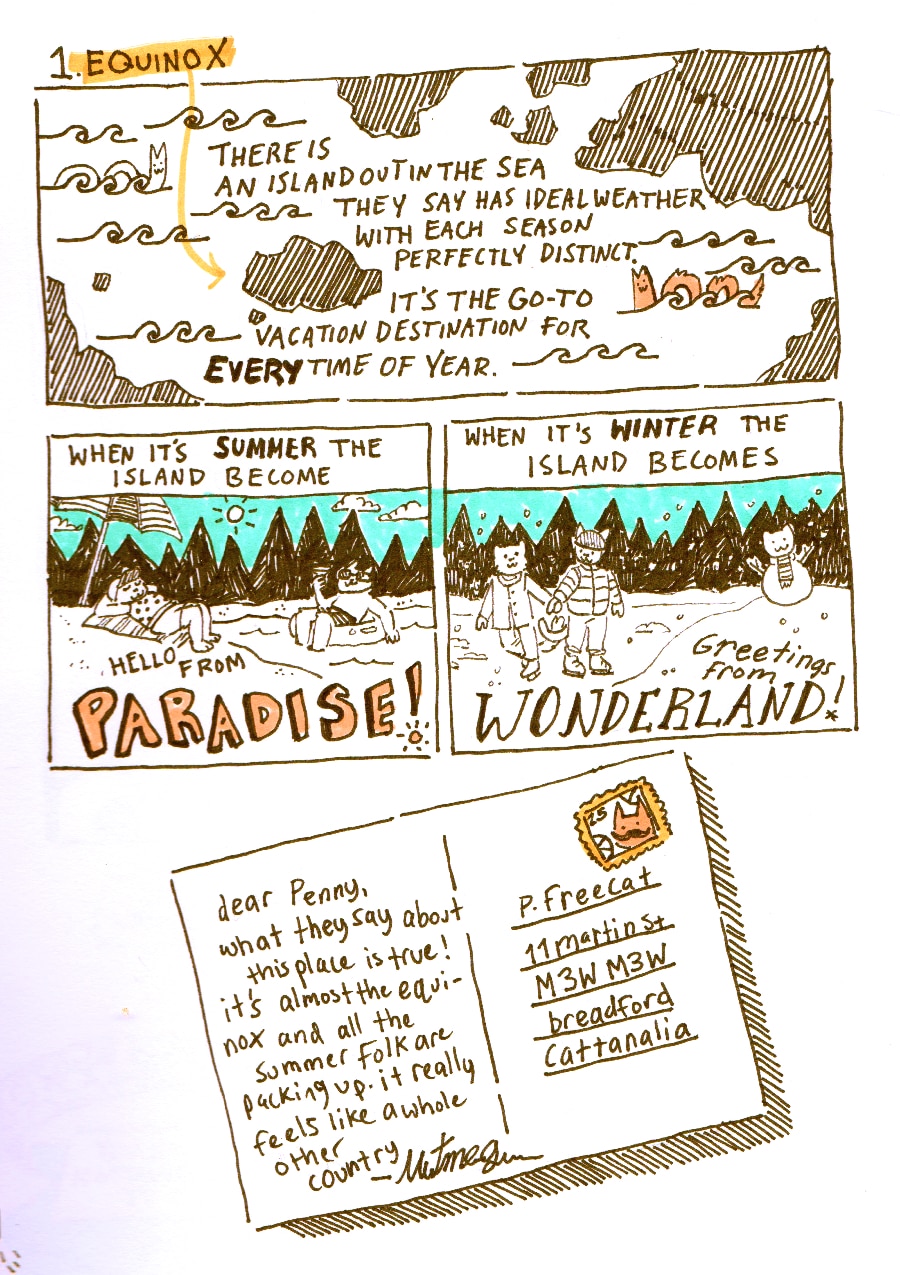 1. EQUINOX
THERE IS
AN ISLAND OUT IN THE SEA
THEY SAY HAS IDEAL WEATHER
WITH EACH SEASON
PERFECTLY DISTINCT.
IT'S THE GO-TO
VACATION DESTINATION FOR
EVERY TIME OF YEAR.
WHEN IT'S SUMMER THE
ISLAND BECOME
HELLO FROM
PARADISE!
WHEN IT'S WINTER THE
ISLAND BECOMES
Greetings
from
WONDERLAND!
dear Penny,
what they say about
this place is true!
it's almost the equi-
nox and all the
summer folk are
packing up. it really
feels like a whole
other
country
— Nutmeg
25
P. Freecat
11 martin st
M3W M3W
breadford
Cattanalia